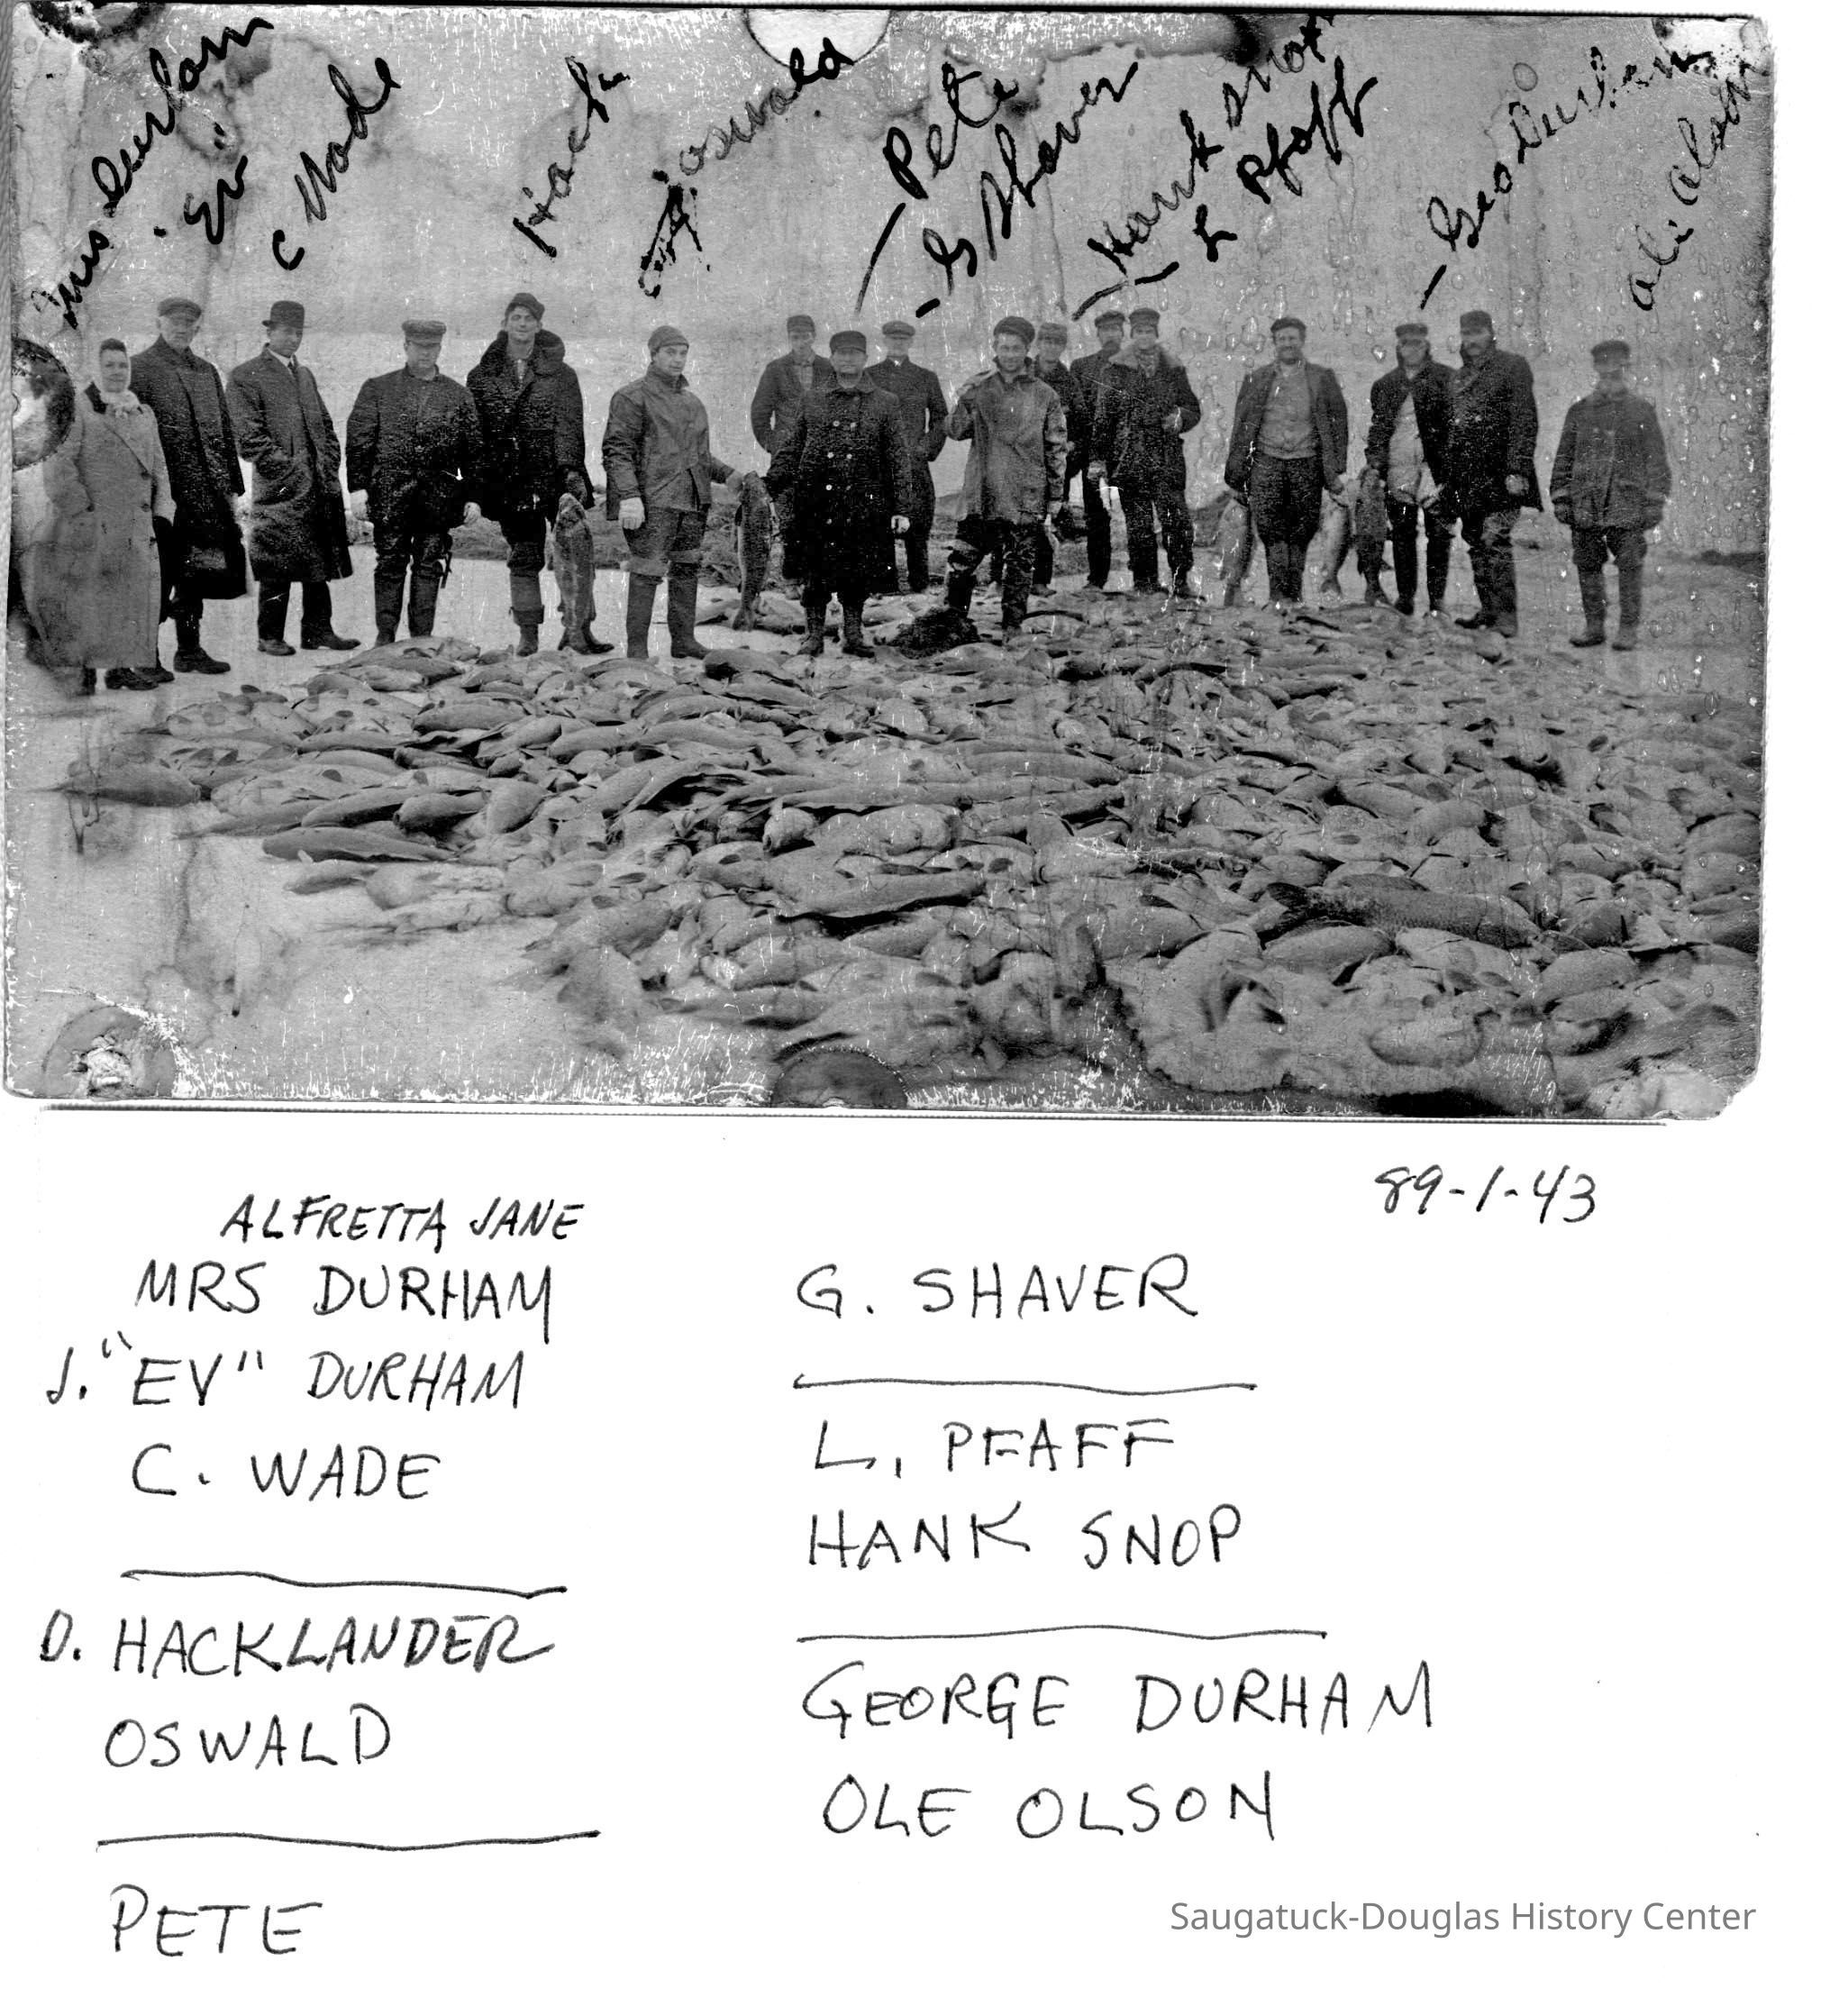 Mrs Durham
"Ev"
C Wade
Hack
Oswald
Pete
G Shaver
Hank Snop
L Pfaff
Geo Durham
Ole Olson
89-1-43
ALFRETTA JANE
MRS DURHAM
J. "EV" DURHAM
C. WADE
D. HACKLANDER
OSWALD
PETE
G. SHAVER
L. PFAFF
HANK SNOP
GEORGE DURHAM
OLE OLSON
Saugatuck-Douglas History Center